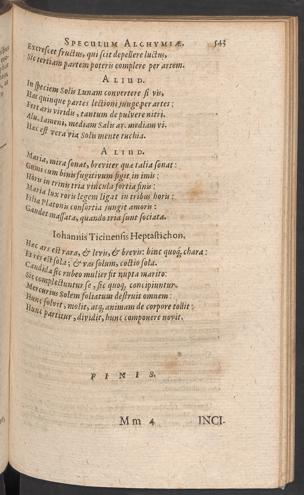 SPECULUM ALCHYMIÆ. 545
Excrescet fructus, qui scit depellere luctus,
Sic tertiam partem poteris complere per artem.
ALIUD.
In speciem Solis Lunam convertere si vis,
Hac quinque partes lectioni junge per artes:
Fert aris viridis, tantum de pulvere nitri.
Alu. lamenta, mediam Salis ar. mediam vi.
Hæc est vera via Solis mente
ALIUD.
Maria, mira sonat, breviter quæ talia sonat:
Gumi cum binis fugitivum figit in imis:
Horis in trinis tria vincula fortia finis:
Maria lux roris legem ligat in tribus horis:
Filia Platonis consortia jungit amoris:
Gaudet massata, quando tria sunt sociata.
Iohannis Ticinensis Heptastichon.
Hac ars est rara, & levis, & brevis: hinc quoq́, chara:
Et res est sola; & vas solum, coctio sola.
Candida sic rubeo mulier sit nupta marito:
Sic complectuntur se, sic quoq́, concipiuntur.
Mercurius Solem foliatum destruit omnem:
Hunc solvit, molit, atq, animam de corpore tollit:
Hunc partitur, dividit, hunc componere novit.
FINIS.
Mm 4 INCI-